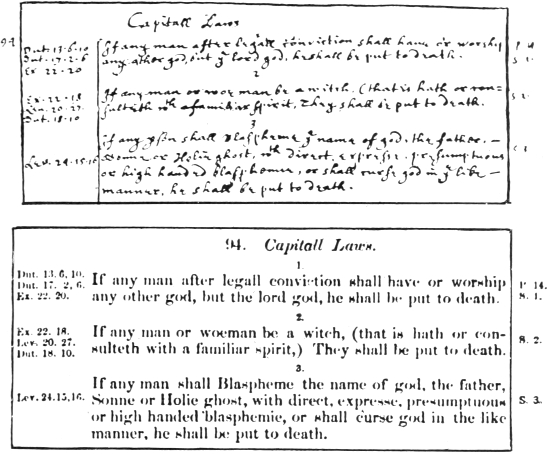 Capitall Laws
94
Dut. 13.6.10 If any man after legall conviction shall have or worship P 14
Dut. 17.2.6 any other god, but ye lord god, he shall be put to death. S. 1.
Ex 22-20
2
Ex. 22-18 If any man or woeman be a witch, (that is hath or con-
Lev. 20-27. sulteth wth a familiar spirit, They shall be put to death. S. 2.
Dut. 18-10
3
If any pson shall Blaspheme ye name of god, the father, –
Lev. 24.15.16 Sonne or Holie ghost, wth direct, expresse, presumptuous
or high handed blasphemie, or shall curse god in ye like –
manner, he shall be put to death.
94. Capitall Laws.
1.
Dut. 13. 6, 10. If any man after legall conviction shall have or worship P. 14.
Dut. 17. 2, 6. any other god, but the lord god, he shall be put to death. S. 1.
Ex. 22. 20.
2.
Ex. 22. 18. If any man or woeman be a witch, (that is hath or con-
Lev. 20. 27. sulteth with a familiar spirit,) They shall be put to death. S. 2.
Dut. 18. 10.
3.
If any man shall Blaspheme the name of god, the father,
Lev. 24.15,16. Sonne or Holie ghost, with direct, expresse, presumptuous S. 3.
or high handed blasphemie, or shall curse god in the like
manner, he shall be put to death.